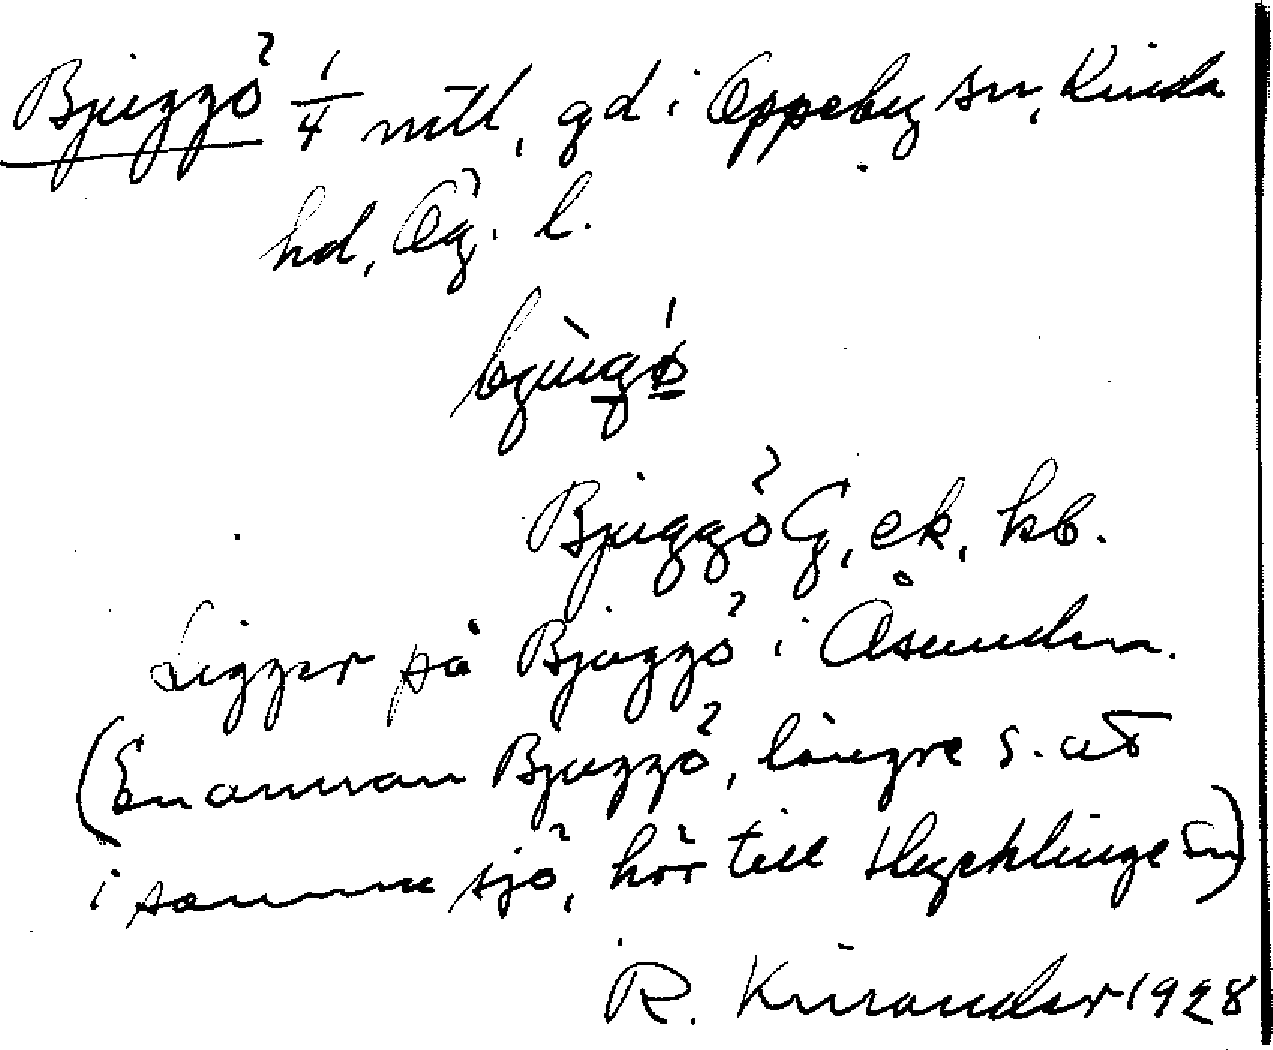 Bjuggö 1/4 mtl, gd i Oppeby sn, Kinda
hd, Ög. l.
bjùgǿ
Bjuggö G, ek, kb.
Ligger på Bjuggö i Åsunden.
(En annan Bjuggö, längre s. ut
i samma sjö, hör till Hycklinge sn)
R. Kinander 1928